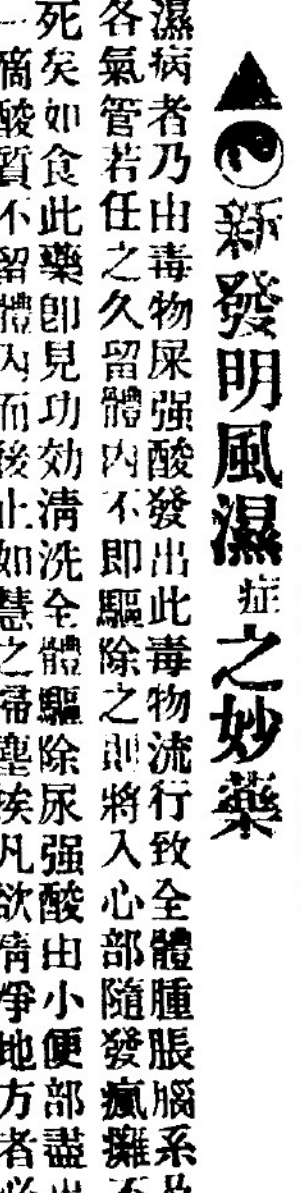 ▲☯新發明風濕症之妙藥
濕病者乃由毒物屎强酸發出此毒物流行致全體腫脹腦系及
各氣管若任之久留體内不即驅除之則將入心部隨發瘋癱不
死矣如食此藥卽見功効淸洗全體驅除尿强酸由小便部盡出
一滴酸質不留體内而後止如慧之帚塵埃凡欲清爭地方者必